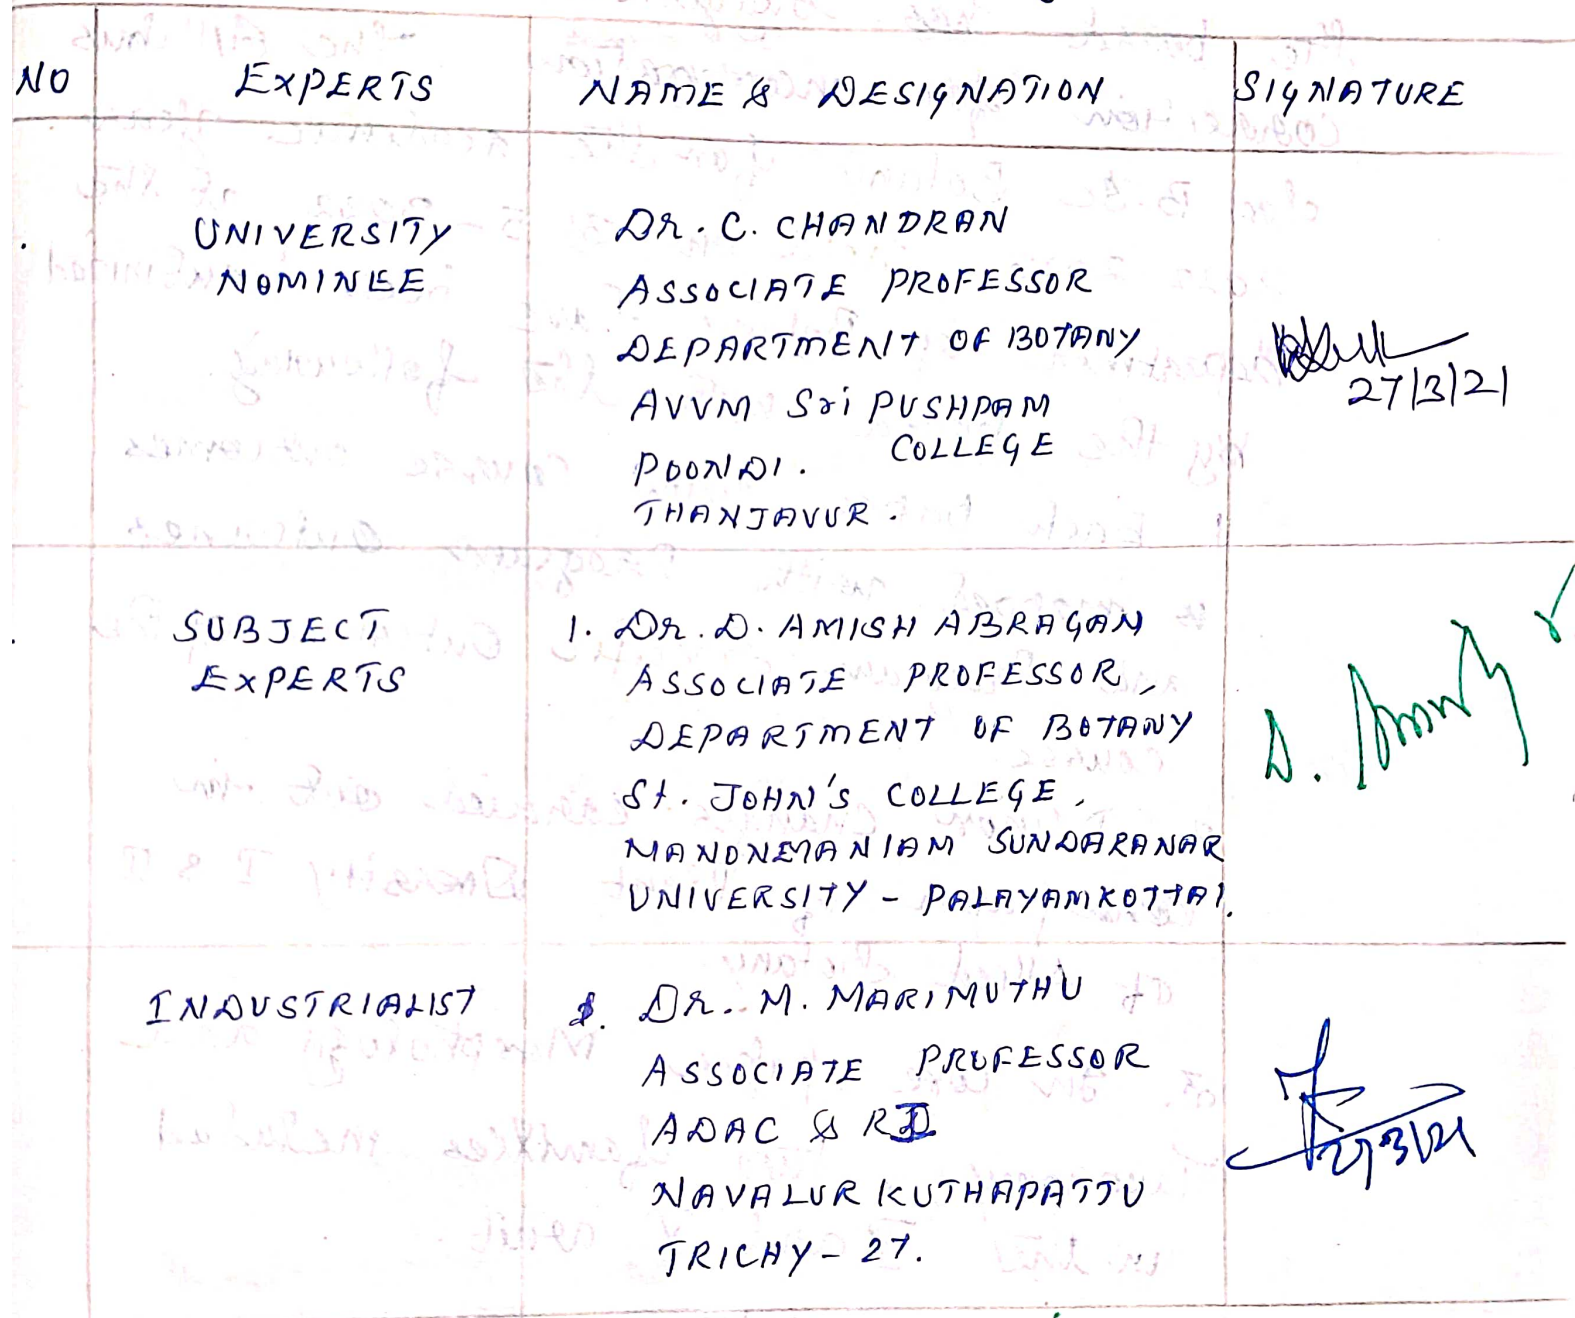 NO EXPERTS NAME & DESIGNATION SIGNATURE
UNIVERSITY
NOMINEE
Dr. C. CHANDRAN
ASSOCIATE PROFESSOR
DEPARTMENT OF BOTANY
AVVM Sri PUSHPAM
COLLEGE
POONDI.
THANJAVUR.
27/3/21
SUBJECT
EXPERTS
1. Dr. D. AMISH ABRAGAN
ASSOCIATE PROFESSOR,
DEPARTMENT OF BOTANY
St. JOHN'S COLLEGE,
MANONEMANIAM SUNDARANAR
UNIVERSITY - PALAYAMKOTTAI.
D.
INDUSTRIALIST
Dr. M. MARIMUTHU
ASSOCIATE PROFESSOR
ADAC & RI
NAVALUR KUTHAPATTU
TRICHY - 27.
27/3/21